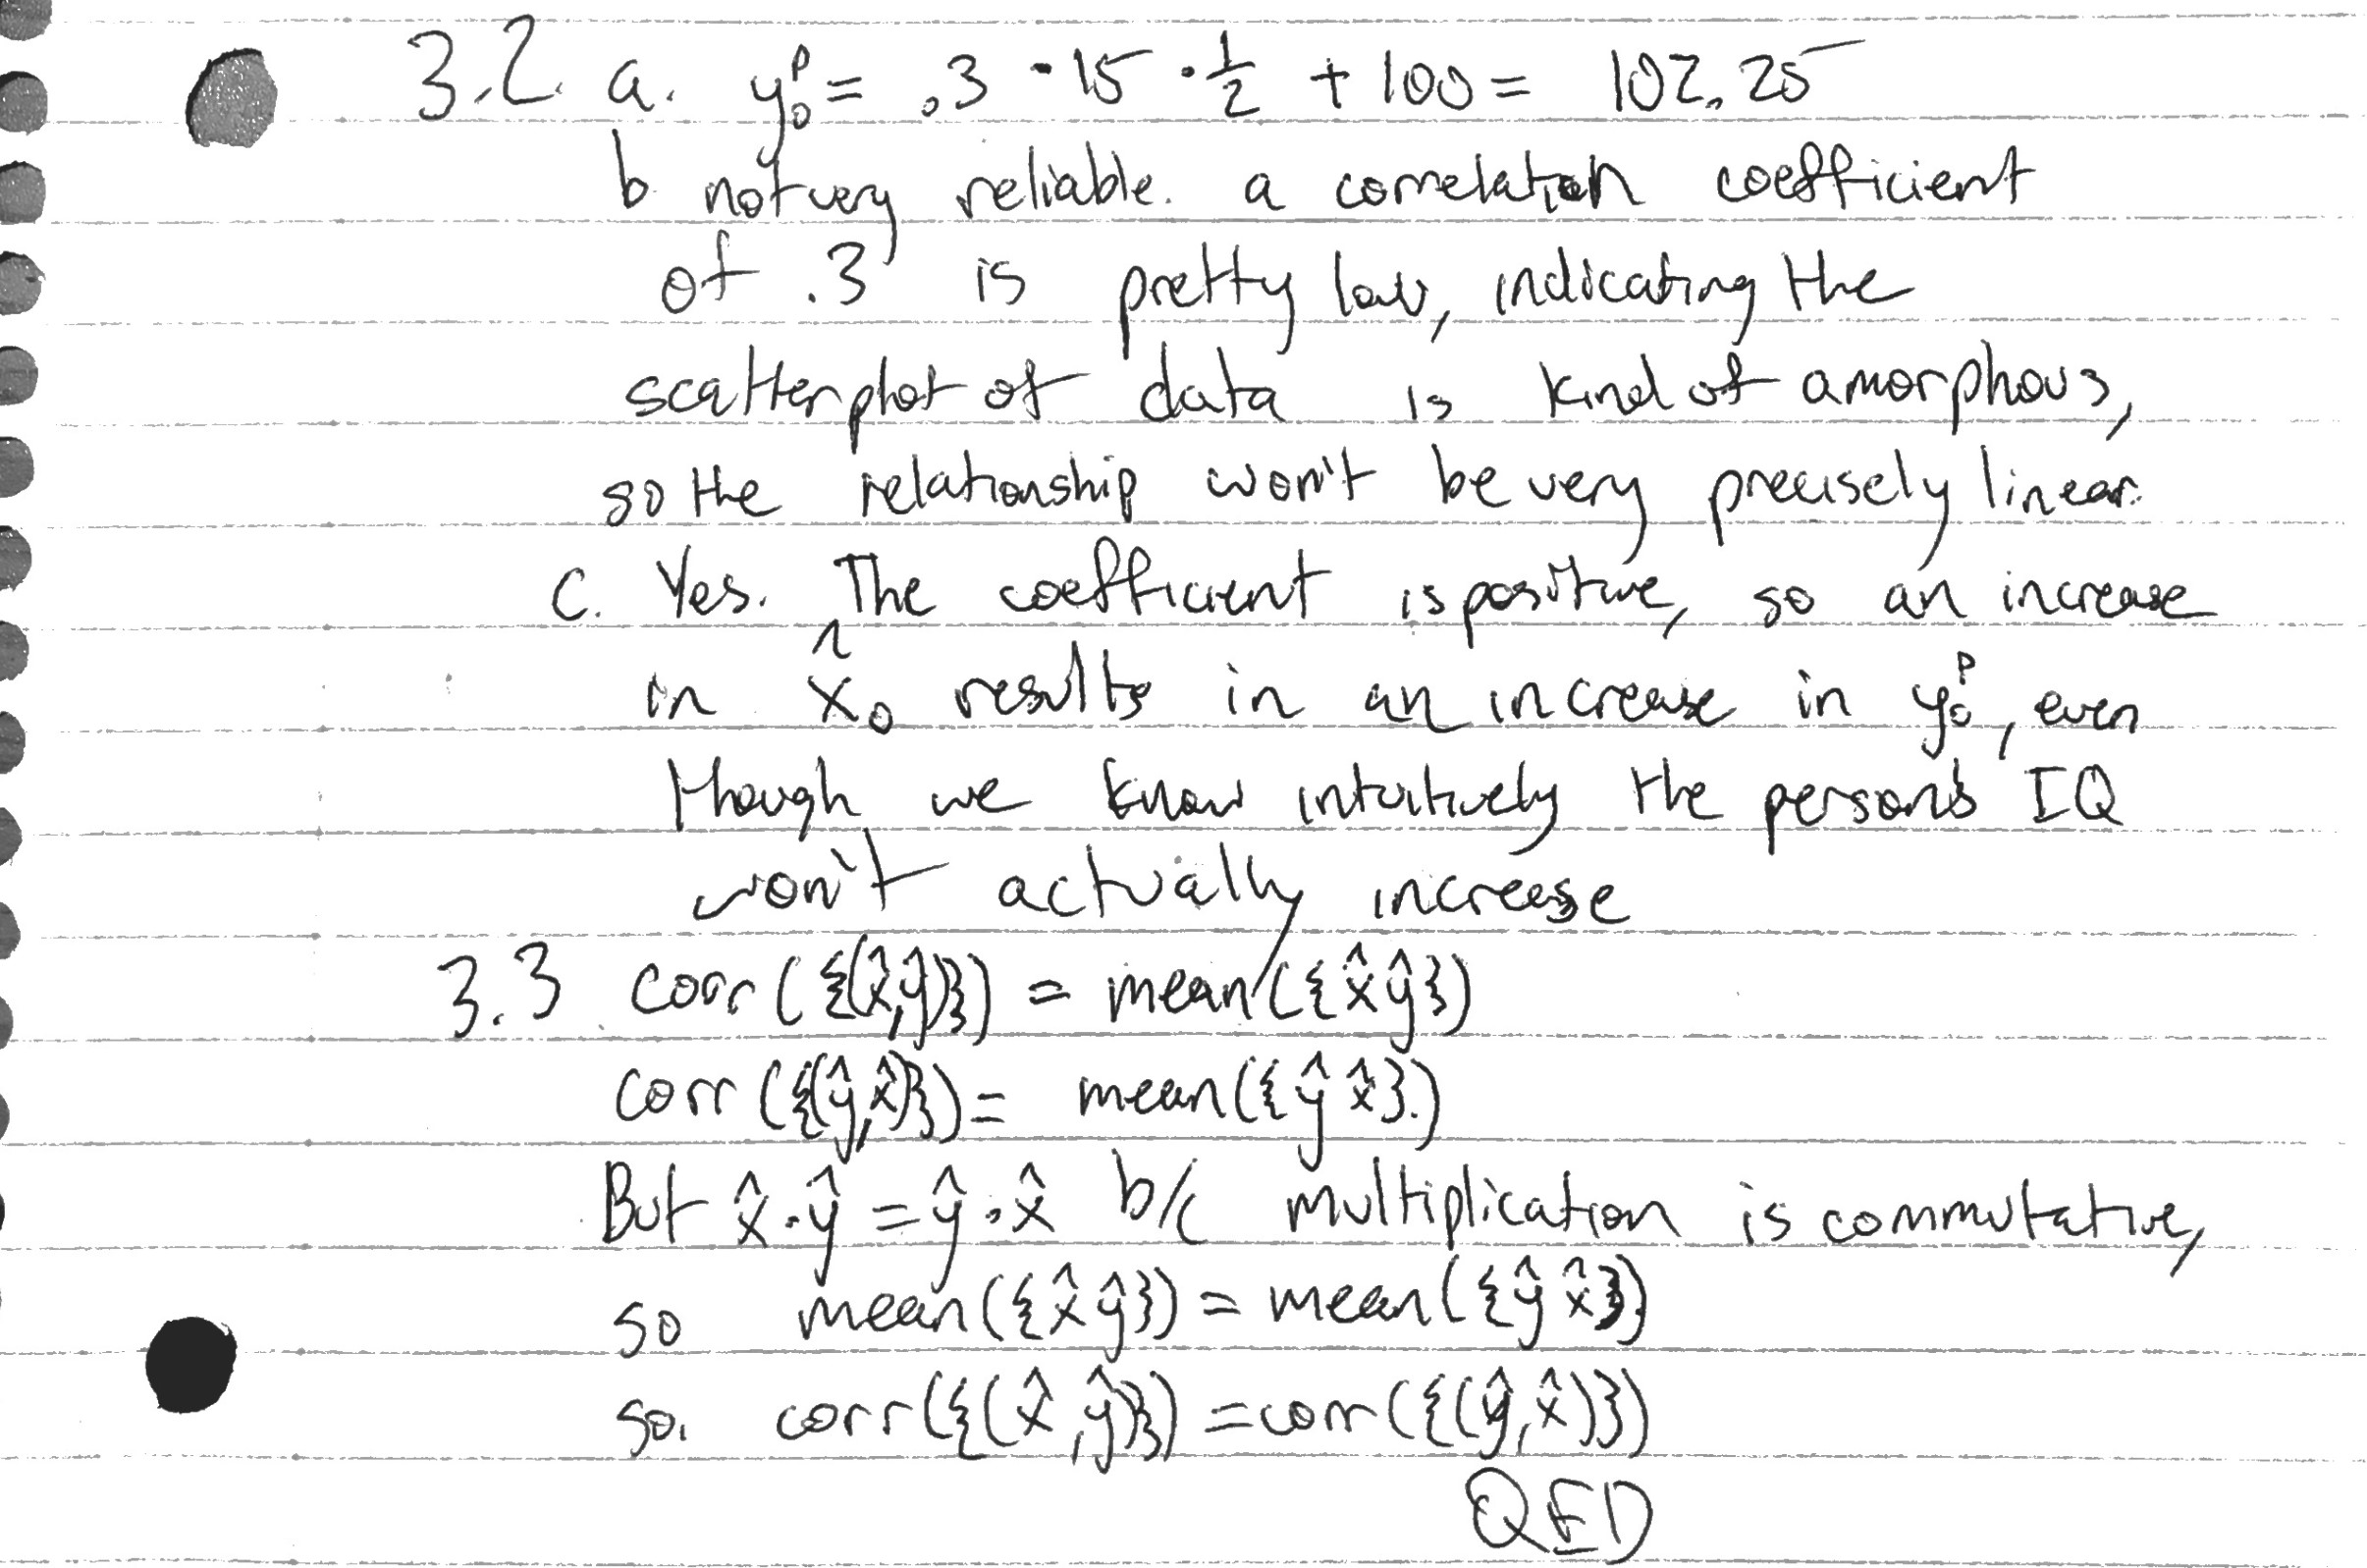 3.2. a. y₀ᵖ = .3 · 15 · ½ + 100 = 102.25
b not very reliable. a correlation coefficient
of .3 is pretty low, indicating the
scatterplot of data is kind of amorphous,
so the relationship won't be very precisely linear.
C. Yes. The coefficient is positive, so an increase
in x̂₀ results in an increase in y₀ᵖ, even
though we know intuitively the person's IQ
won't actually increase
3.3 corr({(x̂,ŷ)}) = mean({x̂ŷ})
corr({(ŷ,x̂)}) = mean({ŷx̂})
But x̂·ŷ = ŷ·x̂ b/c multiplication is commutative,
so mean({x̂ŷ}) = mean({ŷx̂})
so. corr({(x̂,ŷ)}) = corr({(ŷ,x̂)})
QED